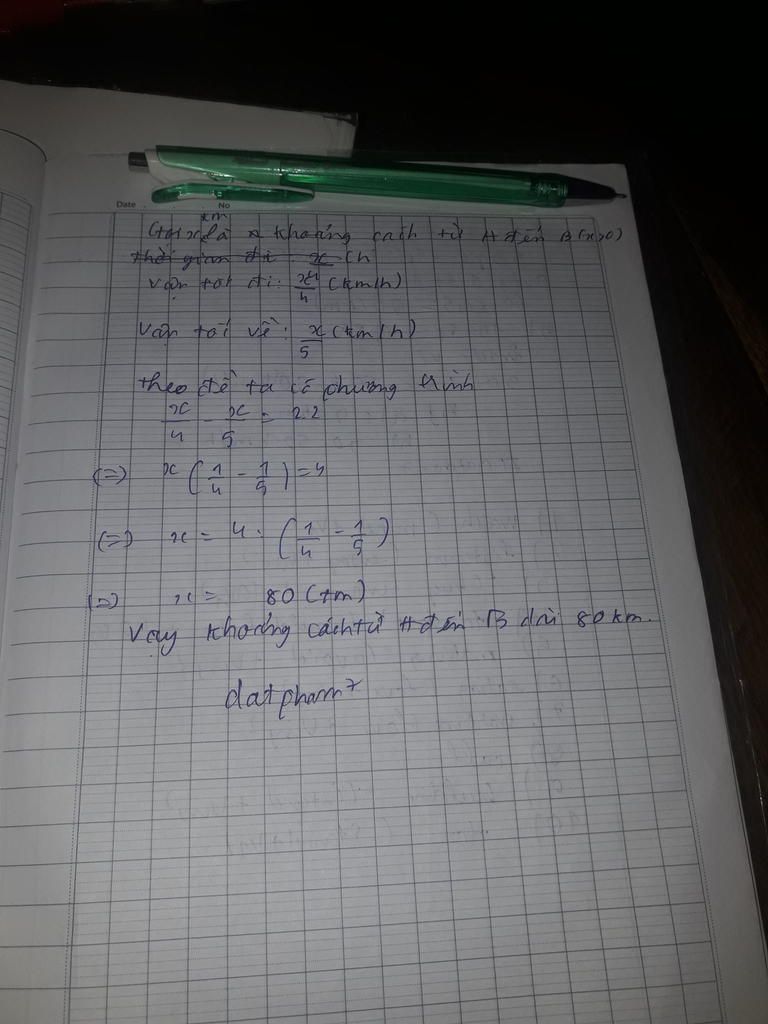 Date No
km
Gọi x là khoảng cách từ A đến B (x>0)
thời gian đi : x (h
Vận tốc đi: x/4 (km/h)
Vận tốc về: x/5 (km/h)
theo đề ta có phương trình
x/4 - x/5 = 2.2
(=) x (1/4 - 1/5) = 4
(=) x = 4 : (1/4 - 1/5)
(=) x = 80 (km)
Vậy khoảng cách từ A đến B dài 80 km.
datpham7